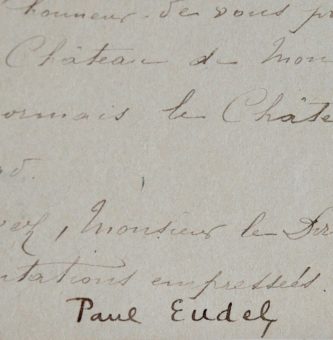 honneur de vous p
Château de Mon
ormais le Châte
, Monsieur le Dir
ntations empressées.
Paul Eudel